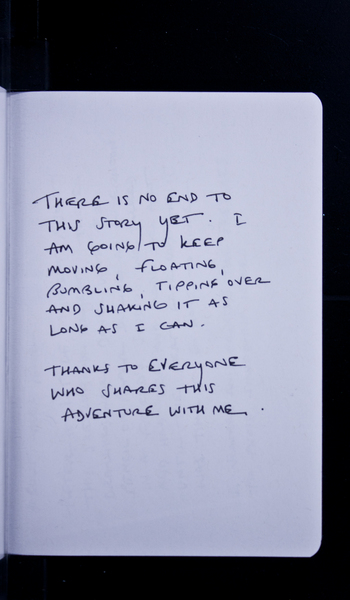 THERE IS NO END TO
THIS STORY YET. I
AM GOING TO KEEP
MOVING, FLOATING,
BUMBLING, TIPPING OVER
AND SHAKING IT AS
LONG AS I CAN.
THANKS TO EVERYONE
WHO SHARES THIS
ADVENTURE WITH ME.